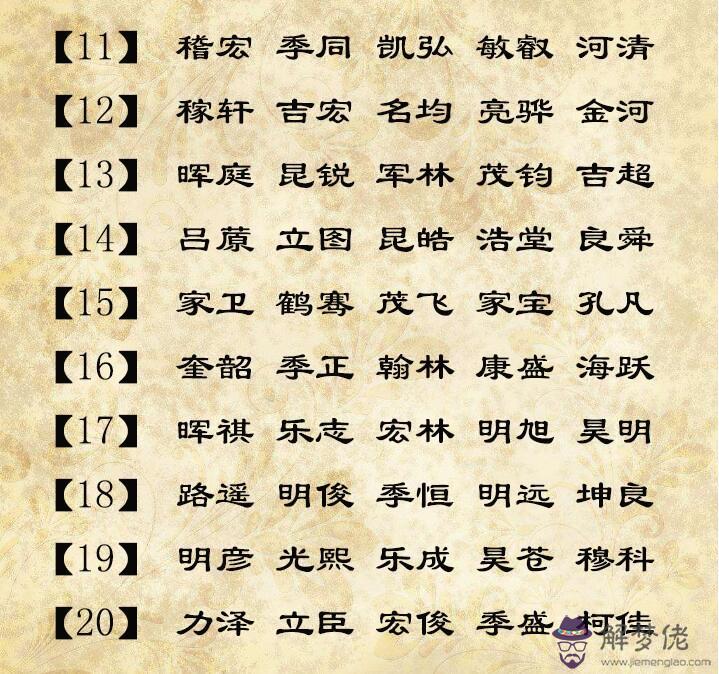 【11】 稽宏 季同 凯弘 敏叡 河清
【12】 稼轩 吉宏 名均 亮骅 金河
【13】 晖庭 昆锐 军林 茂钧 吉超
【14】 吕蒝 立图 昆皓 浩堂 良舜
【15】 家卫 鹤骞 茂飞 家宝 孔凡
【16】 奎韶 季正 翰林 康盛 海跃
【17】 晖祺 乐志 宏林 明旭 昊明
【18】 路遥 明俊 季恒 明远 坤良
【19】 明彦 光熙 乐成 昊苍 穆科
【20】 力泽 立臣 宏俊 季盛 柯佳
解梦佬
www.jiemenglao.com